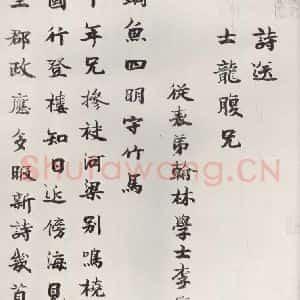 詩送
士龍腹兄
從表弟翰林學士李
魚四明守竹馬
十年兄摻袂河梁別鳴橈
國行登樓知日近傍海見
郡政應多暇新詩幾首
Shufawang.CN